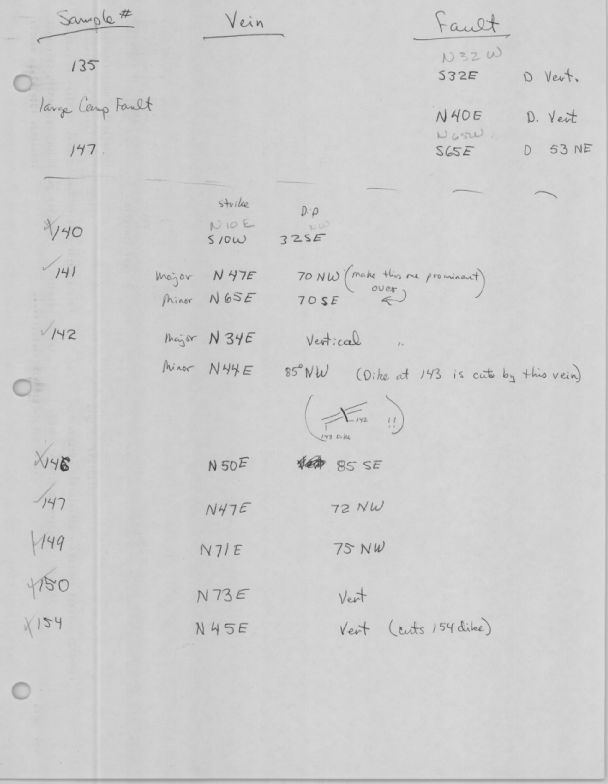 Sample # Vein Fault
N32W
135 S32E D Vert.
large Camp Fault N40E D. Vert
N65W
147 S65E D 53 NE
Strike Dip
N10E NW
140 S10W 32SE
141 Major N47E 70 NW (make this one prominent
Minor N65E 70SE over)
142 Major N34E Vertical "
Minor N44E 85° NW (Dike at 143 is cuts by this vein)
142 !!
143 Dike
146 N50E 85 SE
147 N47E 72 NW
149 N71E 75 NW
150 N73E Vert
154 N45E Vert (cuts 154 dike)